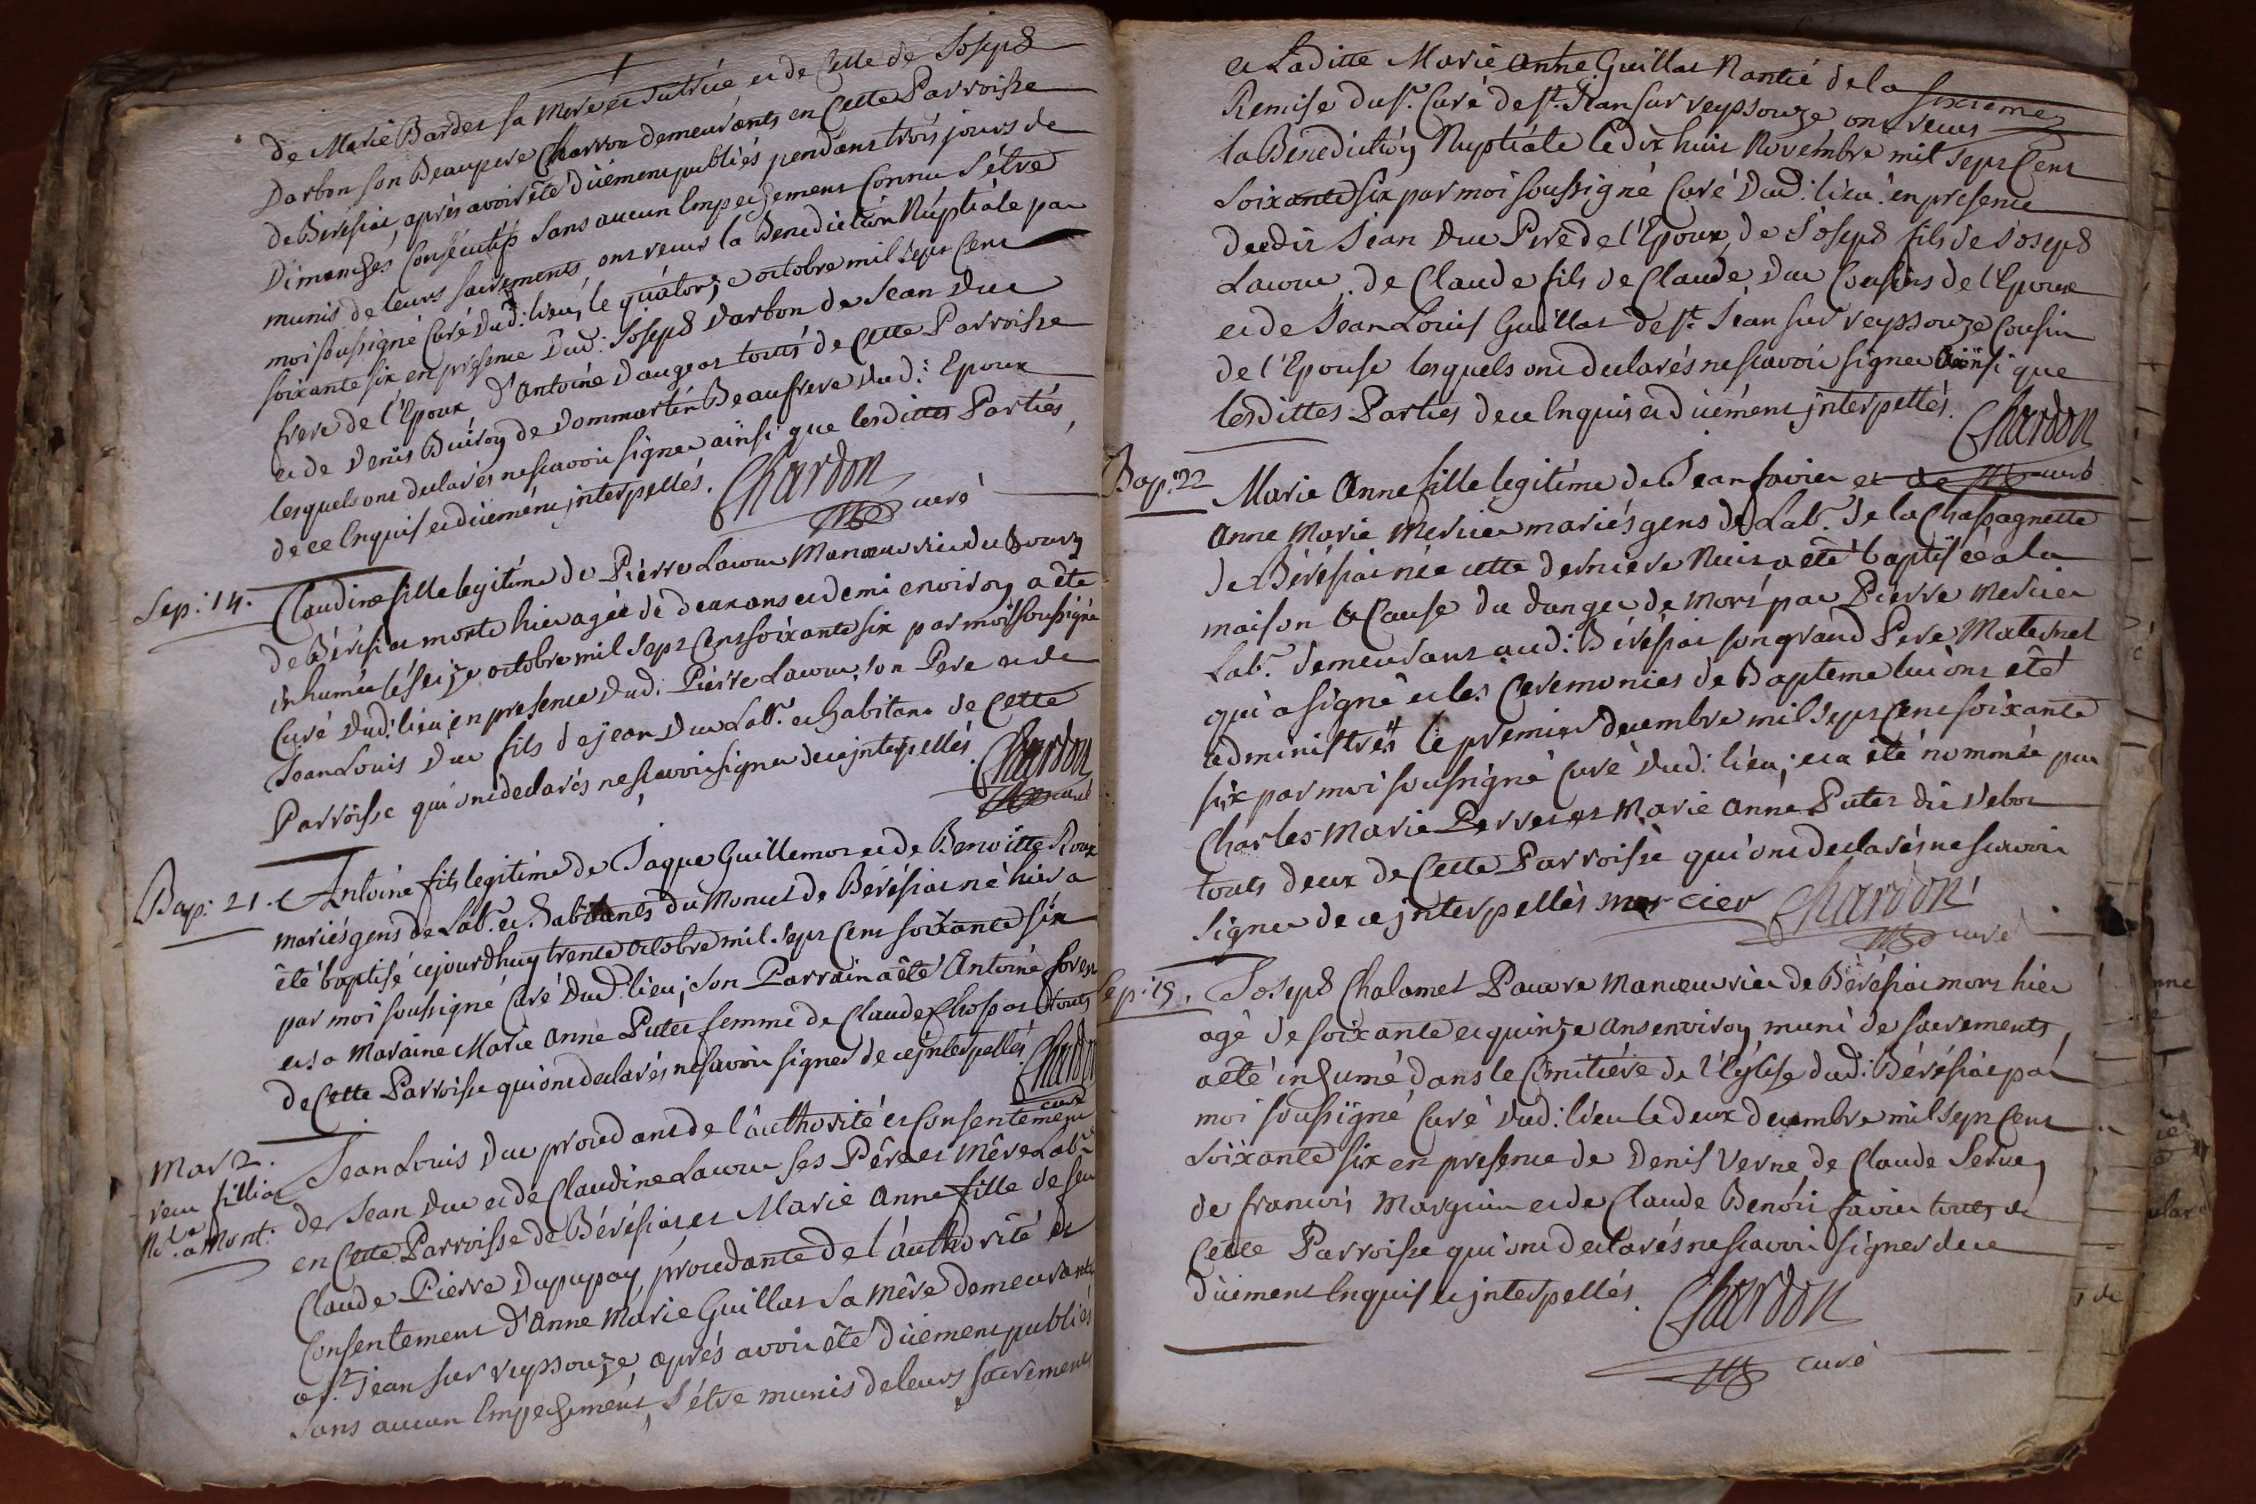 de Marie Bardet sa Mere et tutrice et de Celle de Joseph
Darbon son Beaupere Charron demeurants en Cette Parroisse
de Béréfiat, après avoir été düement publiés pendant trois jours de
Dimanches Consécutifs sans aucun Empechement Connu s'être
munis de leurs sacrements, ont recus la Benediction Nuptiale par
moi soussigné Curé dud: lieu, le quatorze octobre mil sept Cent
soixante six en presence dud: Joseph Darbon de Jean Duc
frere de l'Epoux, d'Antoine Daugeat touts de Cette Parroisse
et de Denis Buiron de Dommartin Beaufrere dud: Epoux
lesquels ont declarés ne scavoir signer ainsi que lesdittes Parties,
de ce Enquis et düement interpellés. Chardon
curé
Sep: 14. Claudine fille legitime de Pierre Lacour Manœuvrier du Bourg
de Béréfiat morte hier agée de deux ans et demi environ a été
inhumée le seize octobre mil sept Cent soixante six par moi soussigné
Curé dud: lieu, en presence dud: Pierre Lacour, son Pere et de
Jean Louis Duc fils de jean Duc Labr. et habitant de Cette
Parroisse qui ont declarés ne scavoir signer de ce interpellés. Chardon
curé
Bap: 21. Antoine fils legitime de Jaque Guillemot et de Benoitte Roux
mariés gens de Labr. et habitants du Moncet de Béréfiat né hier a
été baptisé cejourdhuy trente octobre mil sept Cent soixante six
par moi soussigné Curé dud: lieu; son Parrain a été Antoine
et sa Maraine Marie Anne Putet femme de Claude touts
de Cette Parroisse qui ont declarés ne savoir signer de ce interpellés. Chardon
curé
Mar 2. Jean Louis Duc procedant de l'authorité et Consentement
de Jean Duc et de Claudine Lacour ses Père et Mêre Labrs
a Mont:
en Cette Parroisse de Béréfiat et Marie Anne fille de feu
Claude Pierre Dupupay, procedante de l'authorité et
Consentement d'Anne Marie Guillat sa Mêre demeurants
a St. Jean sur reyssouze, après avoir été düement publiés
sans aucun Empechement, s'être munis de leurs sacrements
et Laditte Marie Anne Guillat Nantie de la
Remise du Sr. Curé de St. Jean sur reyssouze ont recus
la Benediction Nuptiale le dix huit Novembre mil sept Cent
soixante six par moi soussigné Curé dud: lieu: en presence
dudit Jean Duc Pere de l'Epoux, de Joseph fils de Joseph
Lacour, de Claude fils de Claude Duc Cousins de l'Epoux
et de Jean Louis Guillat de St. Jean sur reyssouze Cousin
de l'Epouse lesquels ont declarés ne scavoir signer Ainsi que
lesdittes Parties de ce Enquis et düement interpellés. Chardon
curé
Bap: 22 Marie Anne fille legitime de Jean favier et de
Anne Marie Mercier mariés gens de Labr. de la Chassagnette
de Béréfiat née cette derniere Nuit, a été baptisée a la
maison a Cause du danger de Mort, par Pierre Mercier
Labr. demeurant aud: Béréfiat son grand Pere Maternel
qui a signé et les Ceremonies de Bapteme lui ont été
administrées le premier decembre mil sept Cent soixante
six par moi soussigné Curé dud: lieu; et a été nommée par
Charles Marie Perret et Marie Anne Putet dit Debot
touts deux de Cette Parroisse qui ont declarés ne scavoir
signer de ce interpellés mercier Chardon
curé
Sep: 15. Joseph Chalamet Pauvre Manœuvrier de Béréfiat mort hier
agé de soixante et quinze ans environ, muni de sacrements,
a été inhumé dans le Cimitiére de l'Eglise dud: Béréfiat par
moi soussigné Curé dud: lieu le deux decembre mil sept Cent
soixante six en presence de Denis Verne de Claude Serve,
de francois Marguin et de Claude Benoit favier touts de
Cette Parroisse qui ont declarés ne scavoir signer de ce
düement Enquis et interpellés. Chardon
curé